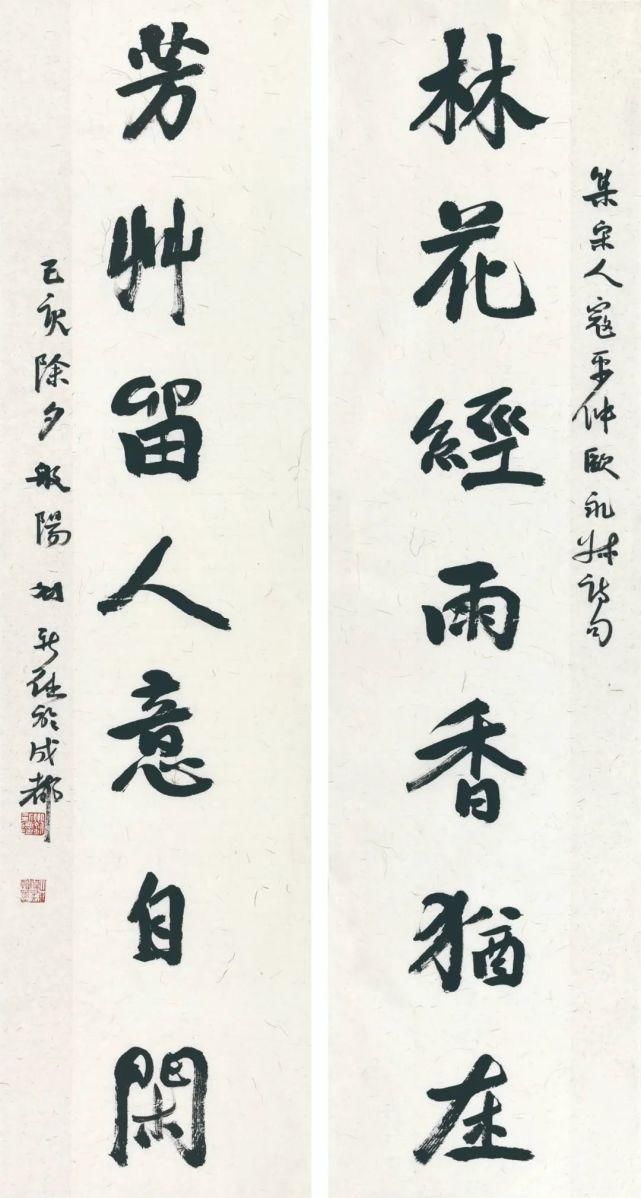 集宋人寇平仲歐永叔詩句
林花經雨香猶在
芳艸留人意自閑
己亥除夕般陽於成都